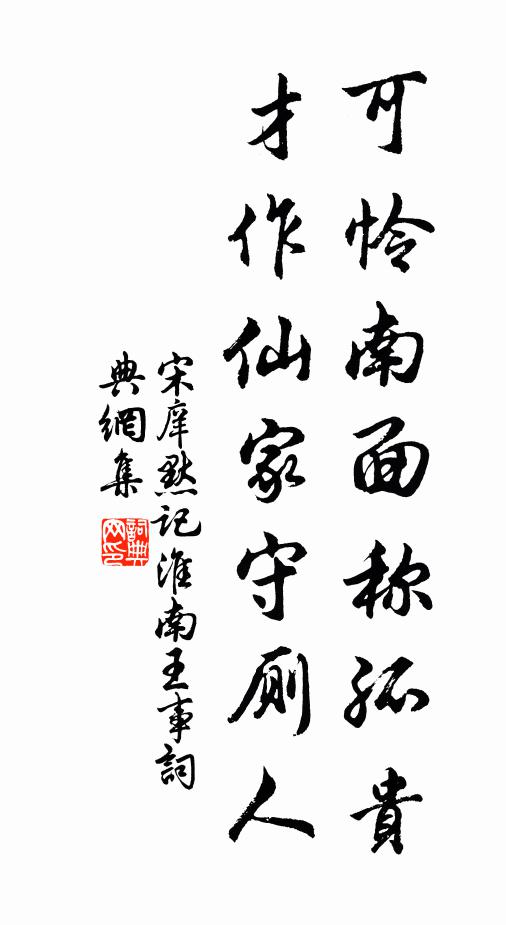 可怜南面称孤貴
才作仙家守厠人
宋庠默记淮南王事詞
典網集
詞典网印